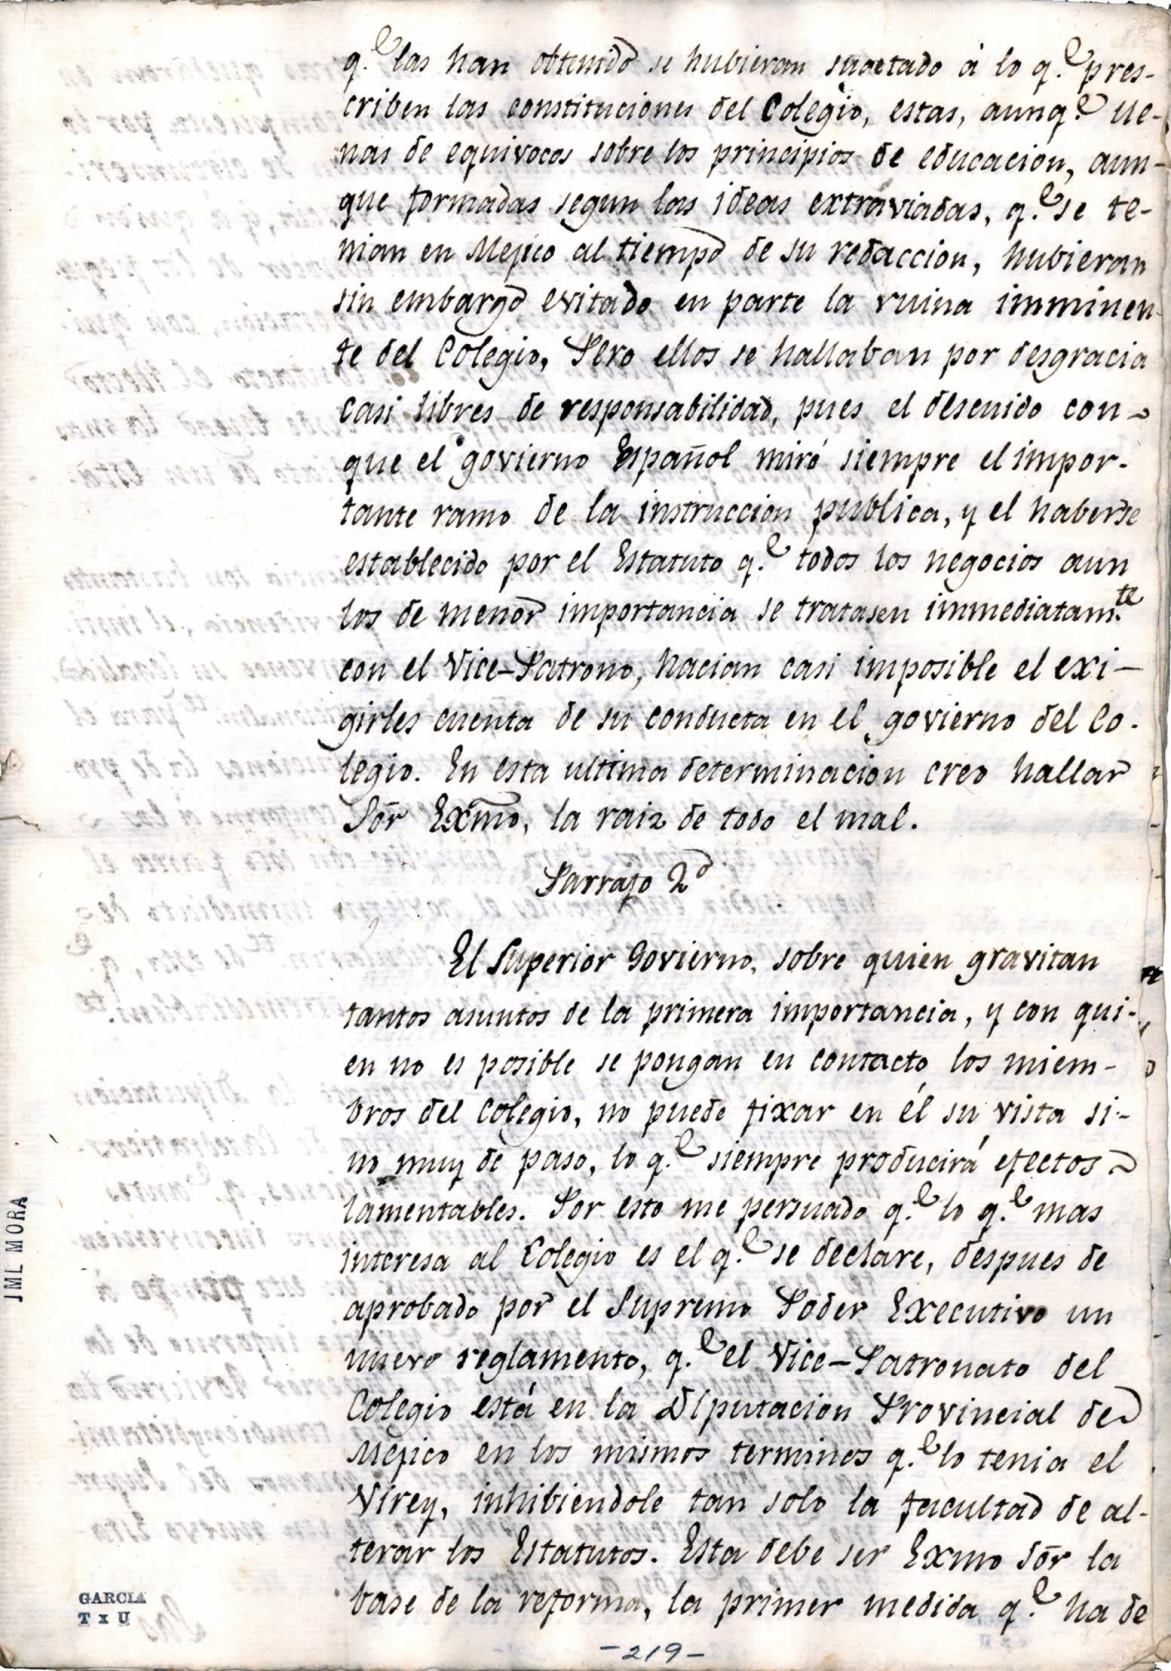 q.e las han obtenido se hubieran sugetado á lo q.e pres-
criben las constituciones del Colegio, estas, aunq.e lle-
nas de equivocos sobre los principios de educacion, aun-
que formadas segun las ideas extraviadas, q.e se te-
nian en Mejico al tiempo de su redaccion, hubieran
sin embargo evitado en parte la ruina imminen-
te del Colegio, Pero ellos se hallaban por desgracia
casi libres de responsabilidad, pues el descuido con-
que el govierno Español miró siempre el impor-
tante ramo de la instruccion publica, y el haberse
establecido por el Estatuto q.e todos los negocios aun
los de menor importancia se tratasen immediatam.te
con el Vice-Patrono, hacian casi imposible el exi-
girles cuenta de su conducta en el govierno del Co-
legio. En esta ultima determinacion creo hallar
Sõr Exmo, la raiz de todo el mal.
Parrafo 2º
El Superior Govierno, sobre quien gravitan
tantos asuntos de la primera importancia, y con qui-
en no es posible se pongan en contacto los miem-
bros del Colegio, no puede fixar en él su vista si-
no muy de paso, lo q.e siempre producirá efectos
lamentables. Por esto me persuado q.e lo q.e mas
interesa al Colegio es el q.e se declare, despues de
aprobado por el Supremo Poder Executivo un
nuevo reglamento, q.e el Vice-Patronato del
Colegio está en la Diputacion Provincial de
Mejico en los mismos terminos q.e lo tenia el
Virey, inhibiendole tan solo la facultad de al-
terar los Estatutos. Esta debe ser Exmo Sõr la
base de la reforma, la primer medida q.e ha de
JML MORA
GARCIA
T x U
-219-